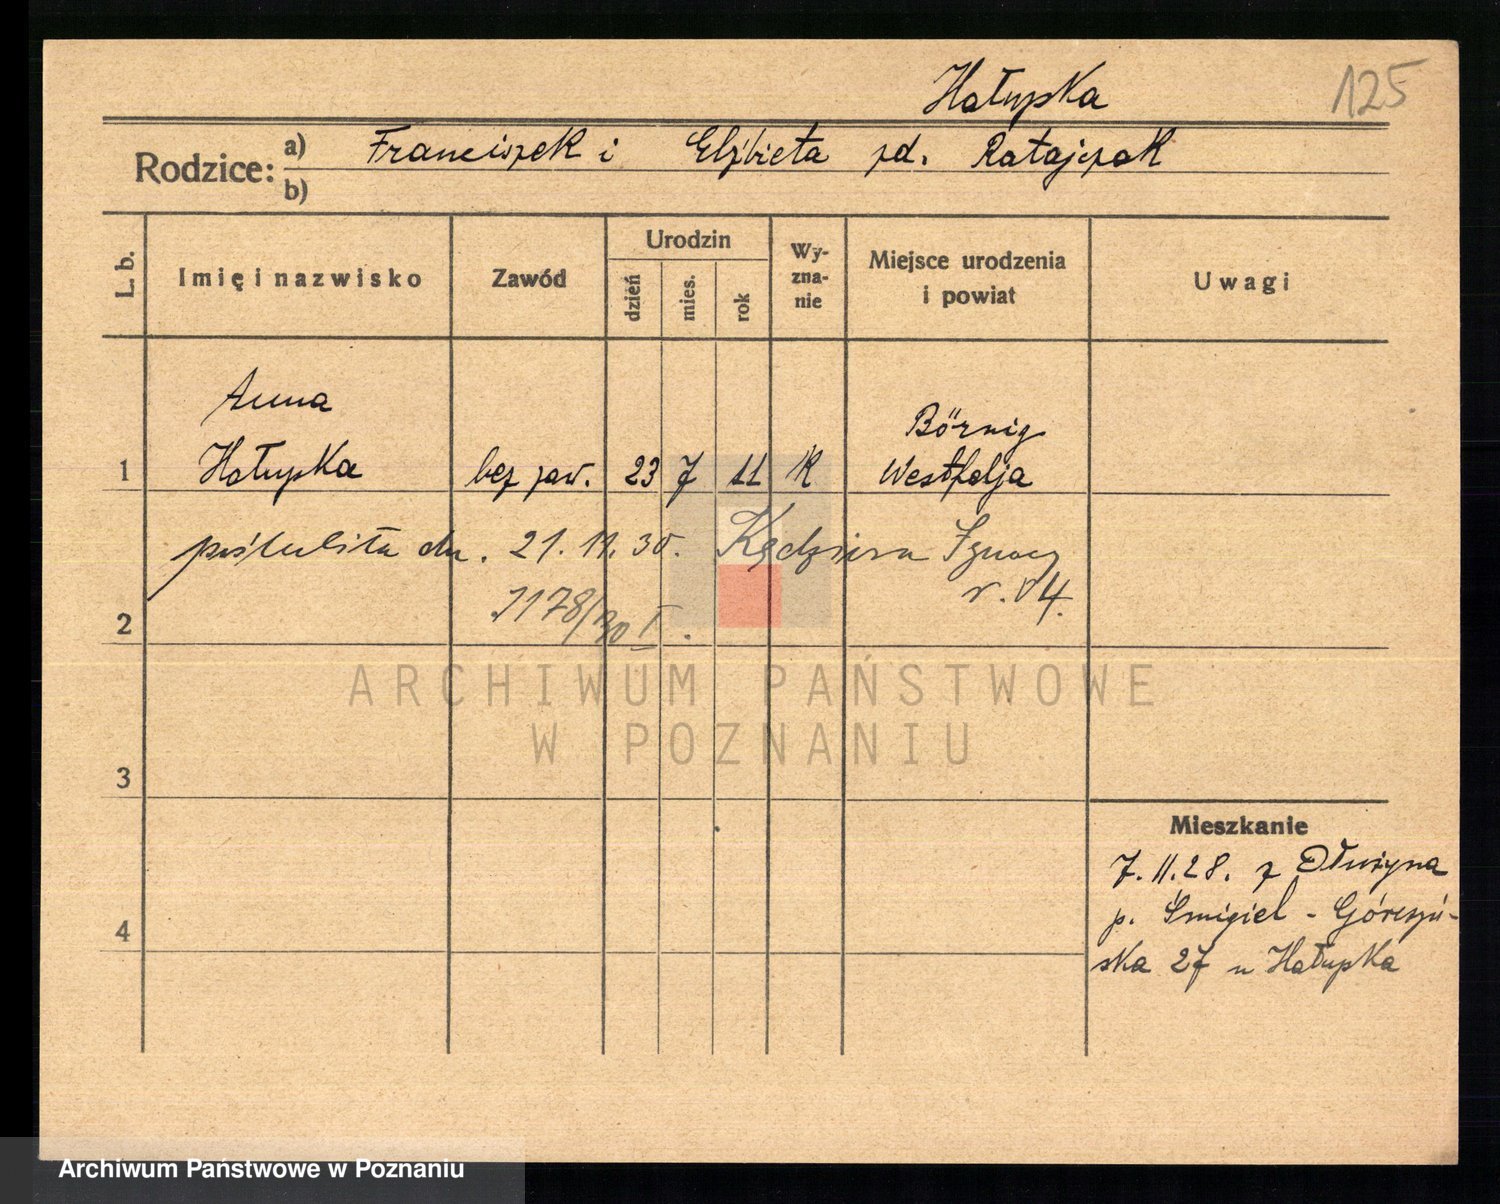 Hałupka
125
Rodzice: a) Franciszek i Elżbieta zd. Ratajczak
b)
L. b.
Imię i nazwisko
Zawód
Urodzin
dzień
mies.
rok
Wy-
zna-
nie
Miejsce urodzenia
i powiat
Uwagi
Anna
Hałupka
Börnig
1 bez zaw. 23 7 11 K Westfalja
poślubiła dn. 21. 11. 30. Kędziora Ignacy
r. 04.
2 1178/30 I.
3
4
Mieszkanie
7.11.28. z Dłużyna
p. Śmigiel - Górczyń-
ska 27 u Hałupka
ARCHIWUM PAŃSTWOWE
W POZNANIU
Archiwum Państwowe w Poznaniu